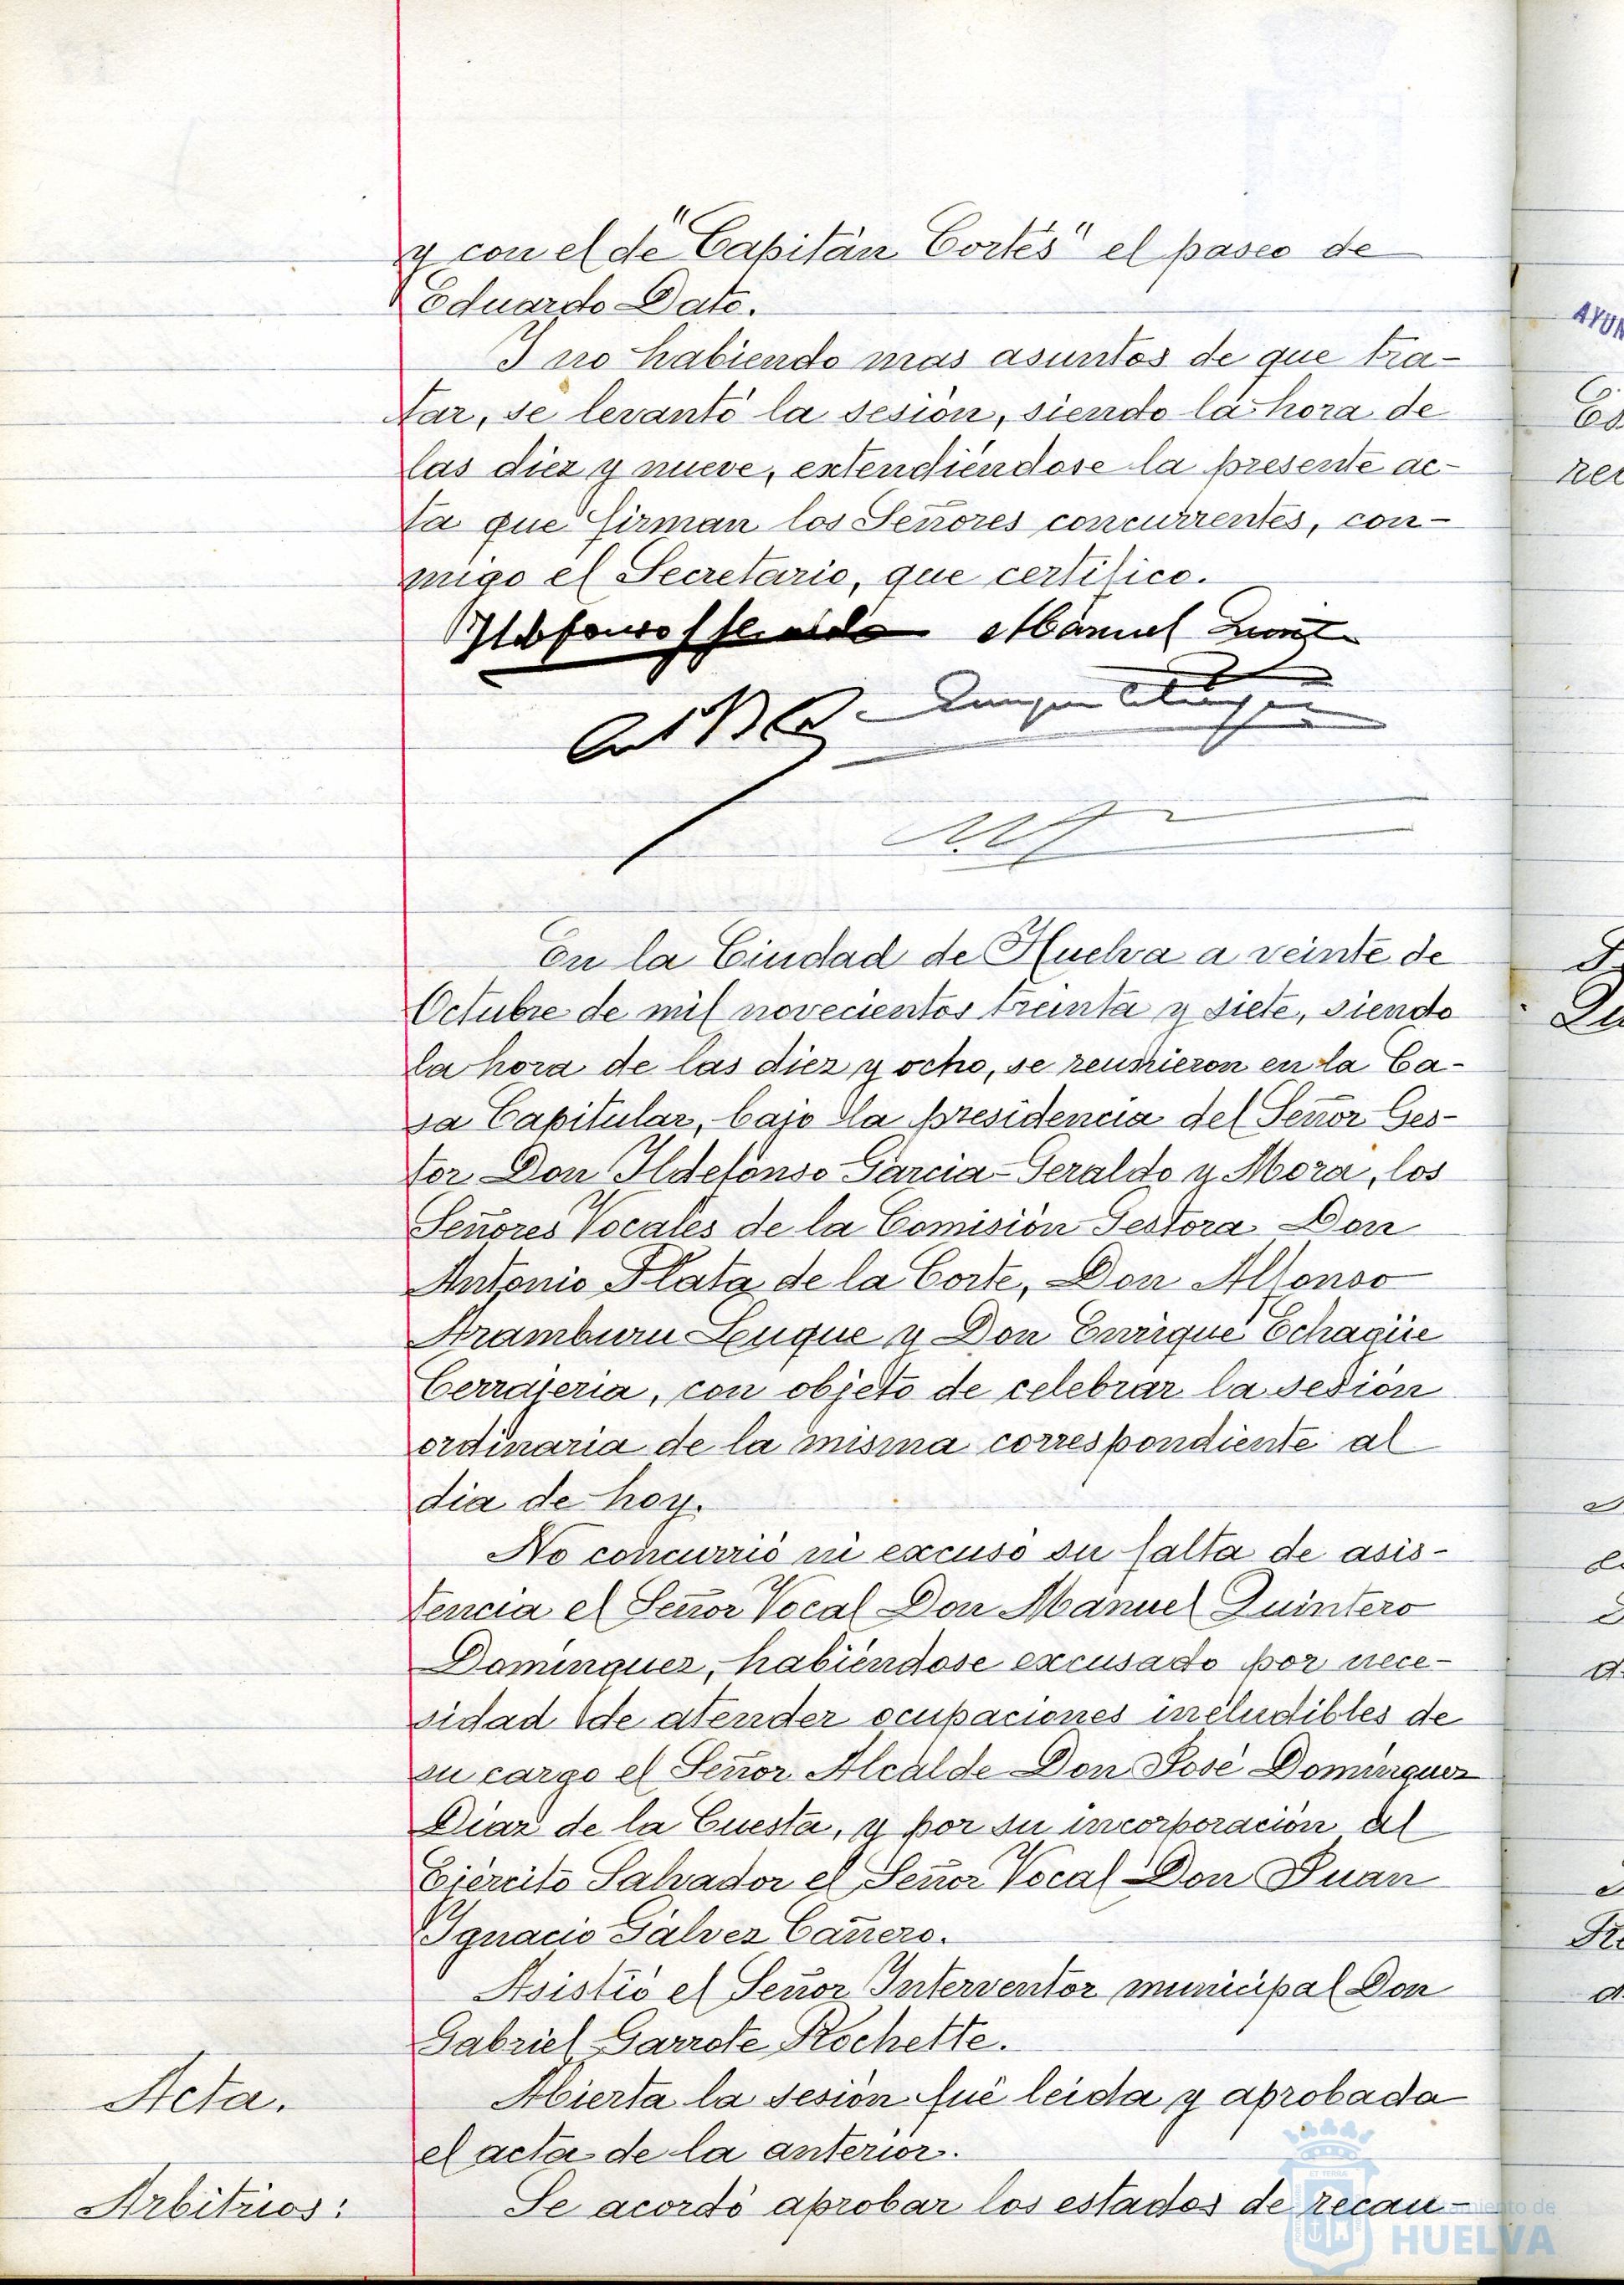 y con el de "Capitán Cortés" el paseo de
Eduardo Dato.
Y no habiendo mas asuntos de que tra-
tar, se levantó la sesión, siendo la hora de
las diez y nueve, extendiéndose la presente ac-
ta que firman los Señores concurrentes, con-
migo el Secretario, que certifico.
Manuel
En la Ciudad de Huelva a veinte de
Octubre de mil novecientos treinta y siete, siendo
la hora de las diez y ocho, se reunieron en la Ca-
sa Capitular, bajo la presidencia del Señor Ges-
tor Don Ildefonso Garcia-Geraldo y Mora, los
Señores Vocales de la Comisión Gestora Don
Antonio Plata de la Corte, Don Alfonso
Aramburu Luque y Don Enrique Echagüe
Cerrajeria, con objeto de celebrar la sesión
ordinaria de la misma correspondiente al
dia de hoy.
No concurrió ni excusó su falta de asis-
tencia el Señor Vocal Don Manuel Quintero
Dominguez, habiéndose excusado por nece-
sidad de atender ocupaciones ineludibles de
su cargo el Señor Alcalde Don José Dominguez
Diaz de la Cuesta, y por su incorporación al
Ejército Salvador el Señor Vocal Don Juan
Ignacio Gálvez Cañero.
Asistió el Señor Interventor municipal Don
Gabriel Garrote Rochette.
Acta.
Abierta la sesión fué leida y aprobada
el acta de la anterior.
Arbitrios:
Se acordó aprobar los estados de recau-
HUELVA